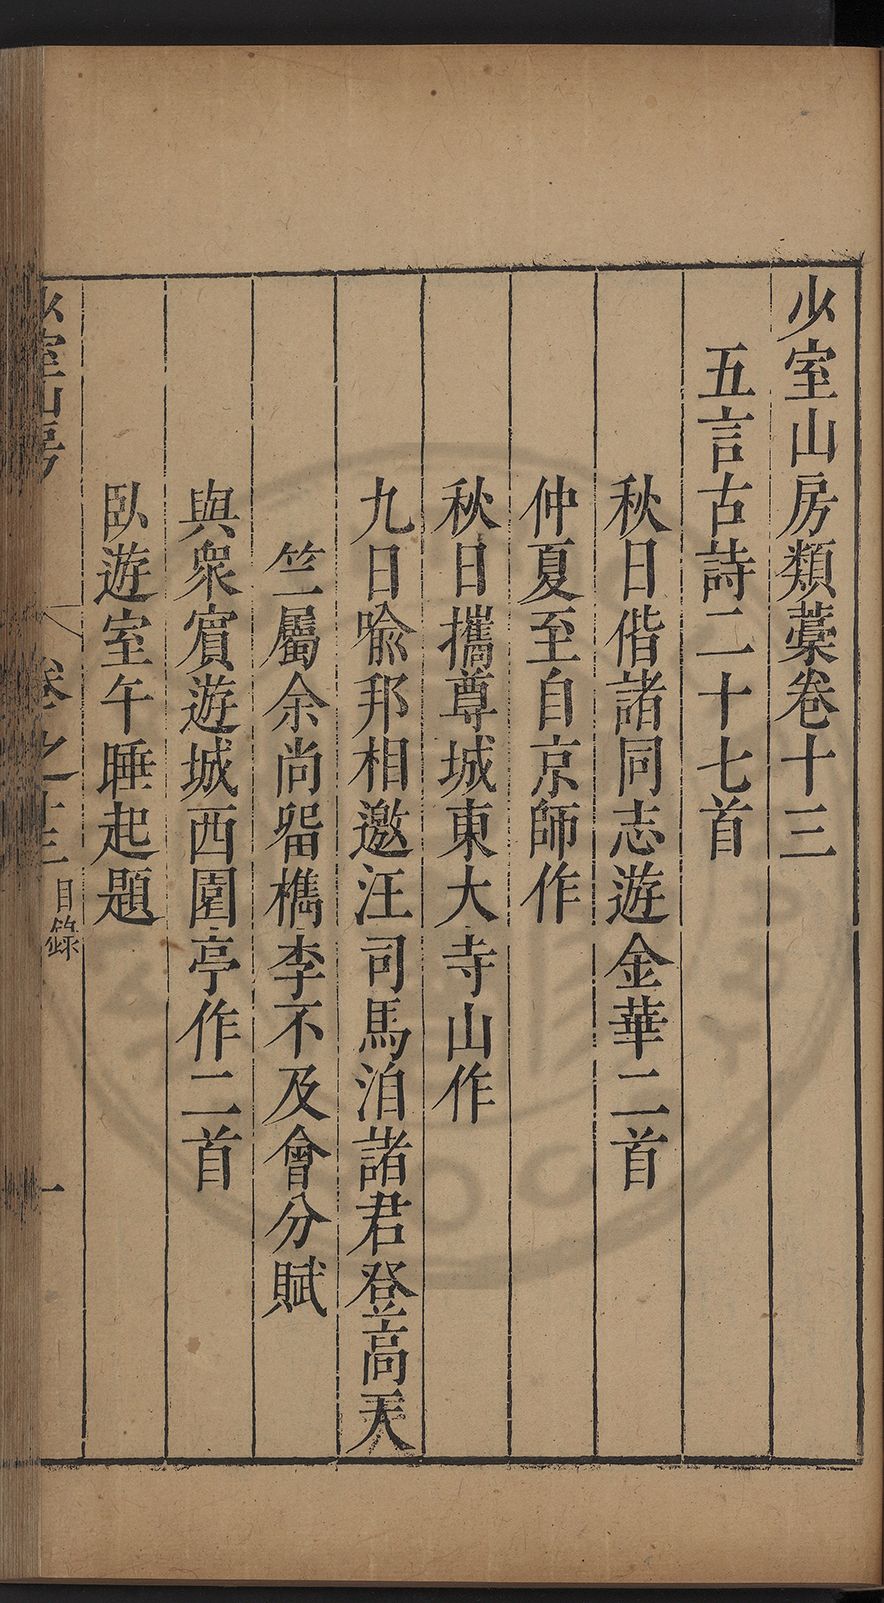 少室山房類藁卷十三
五言古詩二十七首
秋日偕諸同志遊金華二首
仲夏至自京師作
秋日攜尊城東大寺山作
九日喻邦相邀汪司馬洎諸君登高天
竺屬余尚畱檇李不及會分賦
與衆賔遊城西園亭作二首
臥遊室午睡起題
少室山房 卷之十三 目錄 一